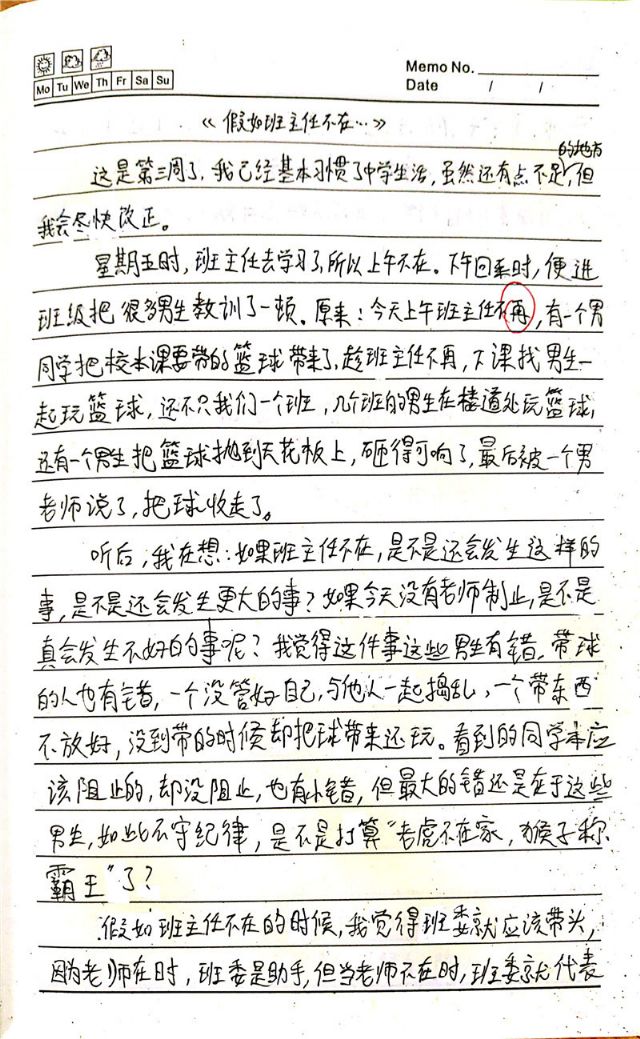 Memo No.
Mo Tu We Th Fr Sa Su
Date / /
《假如班主任不在…》
的地方
这是第三周了，我已经基本习惯了中学生活，虽然还有点不足，但
我会尽快改正。
星期五时，班主任去学习了，所以上午不在。下午回来时，便进
班级把很多男生教训了一顿。原来：今天上午班主任不再，有一个男
同学把校本课要带的篮球带来了，趁班主任不再，下课找男生一
起玩篮球，还不只我们一个班，几个班的男生在楼道处玩篮球，
还有一个男生把篮球抛到天花板上，砸得可响了，最后被一个男
老师说了，把球收走了。
听后，我在想：如果班主任不在，是不是还会发生这样的
事，是不是还会发生更大的事？如果今天没有老师制止，是不是
真会发生不好的的事呢？我觉得这件事这些男生有错，带球
的人也有错，一个没管好自己，与他人一起捣乱，一个带东西
不放好，没到带的时候却把球带来还玩。看到的同学本应
该阻止的，却没阻止，也有小错，但最大的错还是在于这些
男生，如此不守纪律，是不是打算“老虎不在家，猴子称
霸王”了？
假如班主任不在的时候，我觉得班委就应该带头，
因为老师在时，班委是助手，但当老师不在时，班委就代表